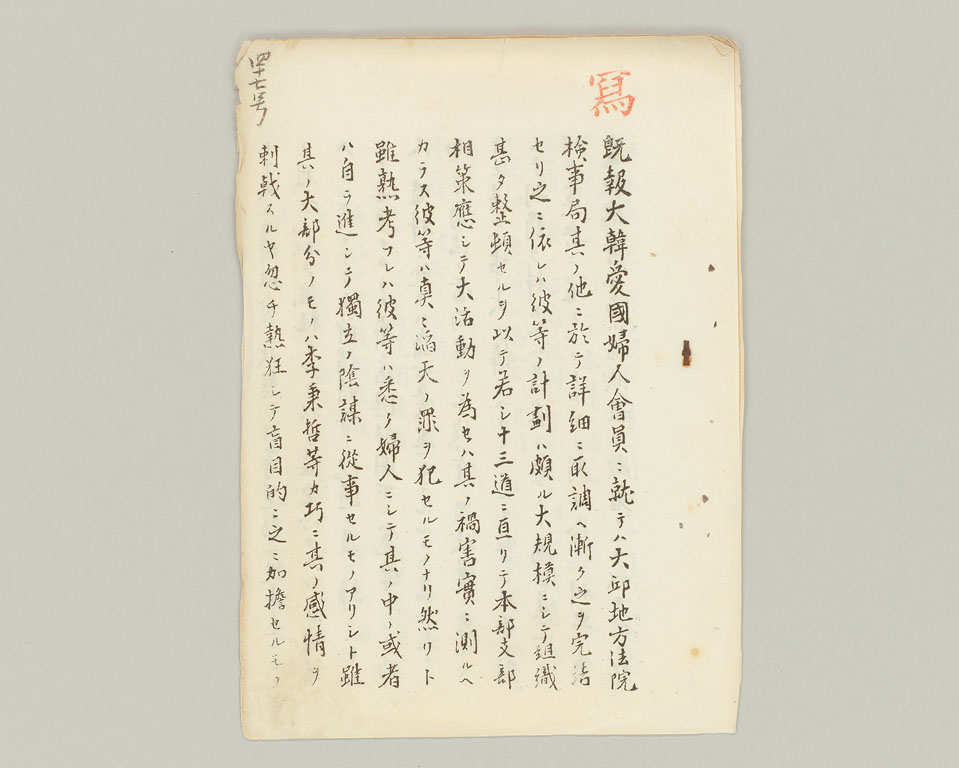 寫
既報大韓愛國婦人會員ニ就テハ大邱地方法院
検事局其ノ他ニ於テ詳細ニ取調ヘ漸ク之ヲ完結
セリ之ニ依レハ彼等ノ計劃ハ頗ル大規模ニシテ組織
甚タ整頓セルヲ以テ若シ十三道ニ亘リテ本部支部
相策應シテ大活動ヲ為セハ其ノ禍害實ニ測ルヘ
カラス彼等ハ真ニ滔天ノ罪ヲ犯セルモノナリ然リト
雖熟考フレハ彼等ハ悉ク婦人ニシテ其ノ中ニ或者
ハ自ラ進シテ獨立ノ陰謀ニ從事セルモノアリシト雖
其ノ大部分ノモノハ李秉哲等カ巧ニ其ノ感情ヲ
刺戟スルヤ忽チ熱狂シテ盲目的ニ之ニ加擔セルモノ
四十七号